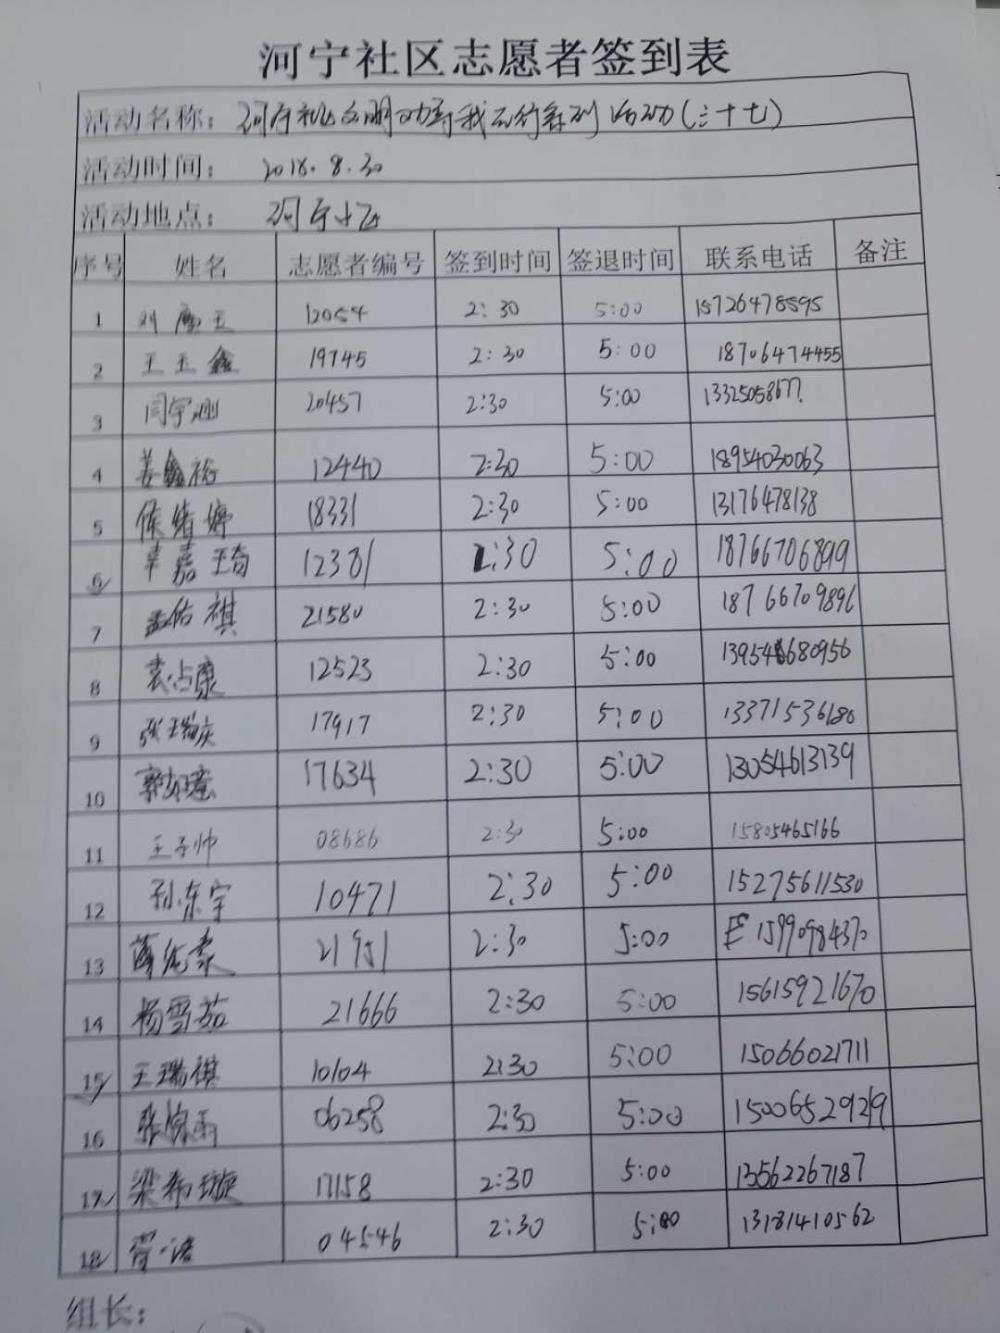 河宁社区志愿者签到表
活动名称：河宁社区文明劝导我先行系列活动(三十七)
活动时间：2018.8.30
活动地点：河宁小区
序号 姓名 志愿者编号 签到时间 签退时间 联系电话 备注
1 刘 玉 12054 2:30 5:00 15726478595
2 王玉鑫 19745 2:30 5:00 18706474455
3 闫宇 20457 2:30 5:00 13325058677
4 姜鑫裕 12440 2:30 5:00 18954030063
5 陈绪婷 18331 2:30 5:00 13176478138
6 辛嘉琦 12381 2:30 5:00 18766706899
7 孟佑祺 21580 2:30 5:00 18766709896
8 袁占康 12523 2:30 5:00
9 张瑞庆 17917 2:30 5:00 13371536186
10 17634 2:30 5:00 13054613139
11 王子帅 08686 2:30 5:00 15805465166
12 孙东宇 10471 2:30 5:00 15275611530
13 薄纯豪 21951 2:30 5:00
14 杨雪茹 21666 2:30 5:00 15615921670
15 王瑞祺 10104 2:30 5:00 15066021711
16 张 雨 06258 2:30 5:00
17 梁希璇 17158 2:30 5:00 13562267187
18 04546 2:30 5:00 13181410562
组长：